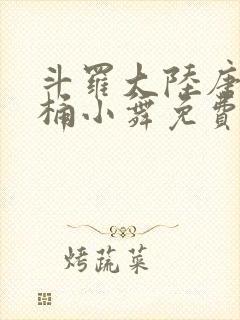 斗羅大陸唐
桶小舞免費
烤蔬菜